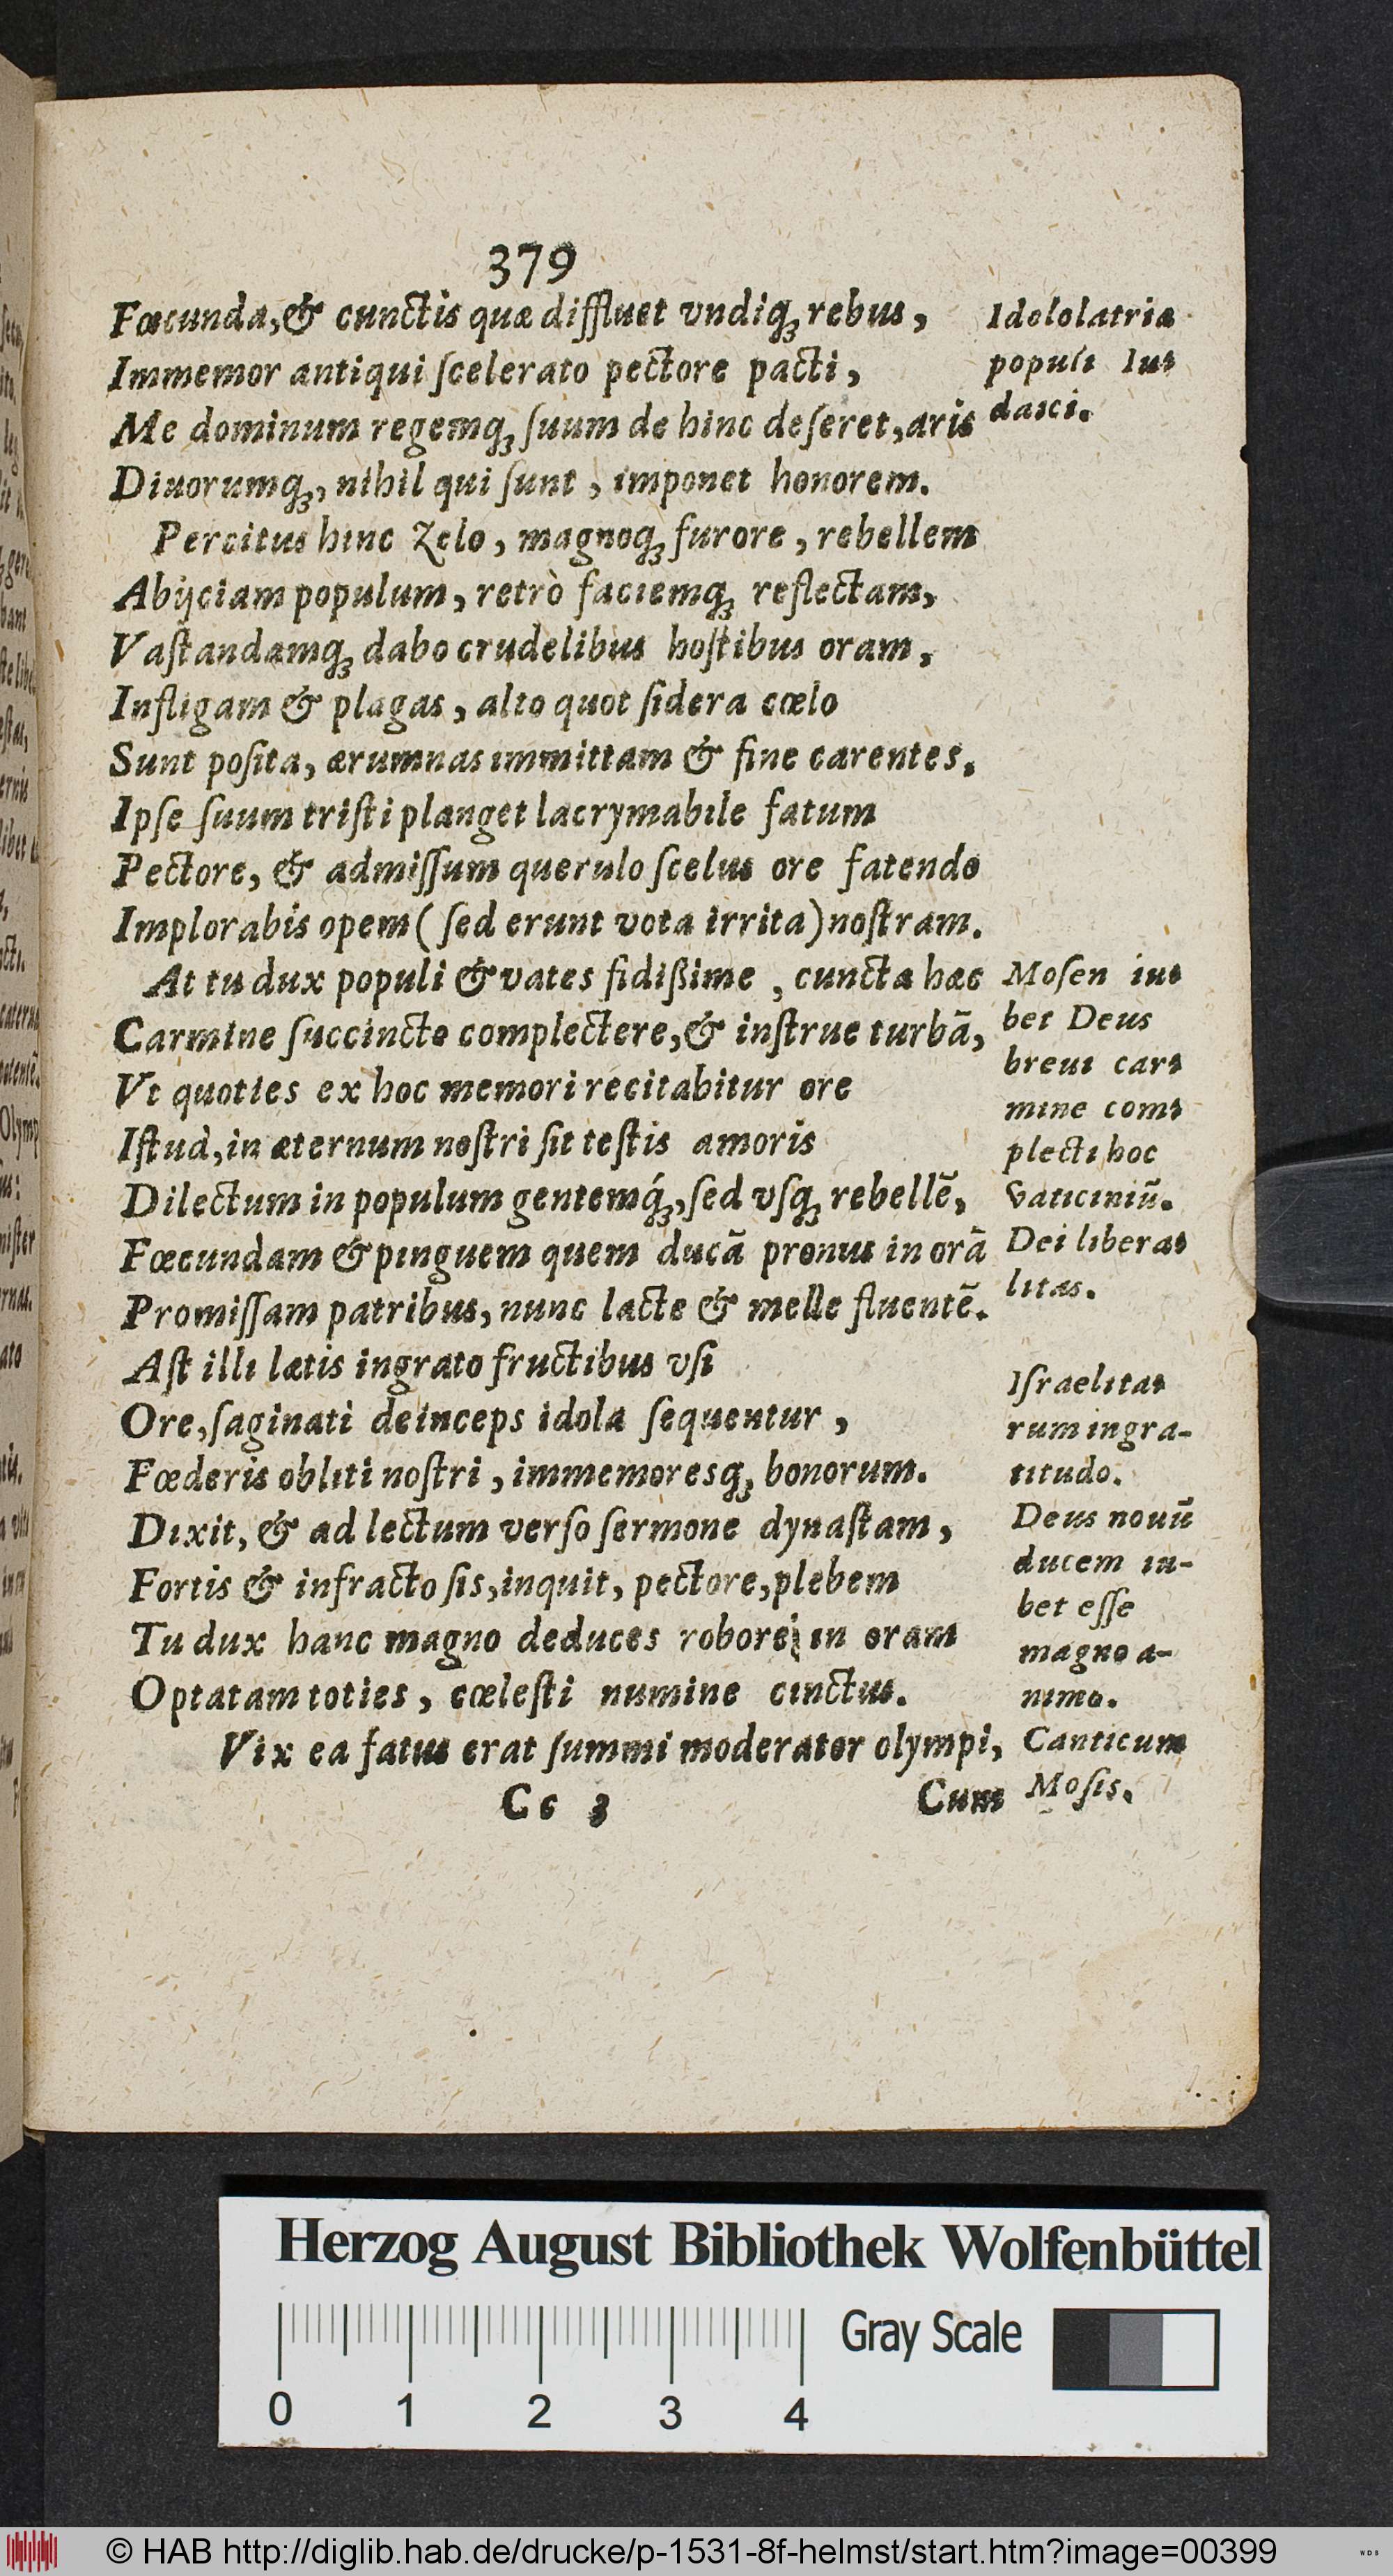 379
Fœcunda,& cunctis quæ diffluet vndiq́ꝫ rebus,
Immemor antiqui ſcelerato pectore pacti,
Me dominum regemqꝫ ſuum de hinc deſeret,aris
Diuorumqꝫ, nihil qui ſunt, imponet honorem.
Percitus hinc Zelo, magnoqꝫ furore, rebellem
Abijciam populum, retrò faciemqꝫ reflectam,
Vaſtandamqꝫ dabo crudelibus hoſtibus oram,
Infligam & plagas, alto quot ſidera cœlo
Sunt poſita, ærumnas immittam & fine carentes.
Ipſe ſuum triſti planget lacrymabile fatum
Pectore, & admiſſum querulo ſcelus ore fatendo
Implorabis opem (ſed erunt vota irrita) noſtram.
At tu dux populi & vates fidißime, cuncta hæc
Carmine ſuccincto complectere,& inſtrue turbã,
Vt quoties ex hoc memori recitabitur ore
Iſtud,in æternum noſtri ſit teſtis amoris
Dilectum in populum gentemq́ꝫ,ſed vſqꝫ rebellẽ,
Fœcundam & pinguem quem ducã pronus in orã
Promiſſam patribus, nunc lacte & melle fluentẽ.
Aſt illi lætis ingrato fructibus vſi
Ore,ſaginati deinceps idola ſequentur,
Fœderis obliti noſtri, immemoresqꝫ bonorum.
Dixit, & ad lectum verſo ſermone dynaſtam,
Fortis & infracto ſis,inquit, pectore,plebem
Tu dux hanc magno deduces robore in oram
Optatam toties, cœleſti numine cinctus.
Vix ea fatus erat ſummi moderator olympi,
Cc 3
Cum
Idololatria
populi Iu-
daici.
Moſen iu-
bet Deus
breui car-
mine com-
plecti hoc
vaticiniũ.
Dei libera-
litas.
Iſraelita-
rum ingra-
titudo.
Deus nouũ
ducem iu-
bet eſſe
magno a-
nimo.
Canticum
Moſis.
Herzog August Bibliothek Wolfenbüttel
0 1 2 3 4
Gray Scale
© HAB http://diglib.hab.de/drucke/p-1531-8f-helmst/start.htm?image=00399